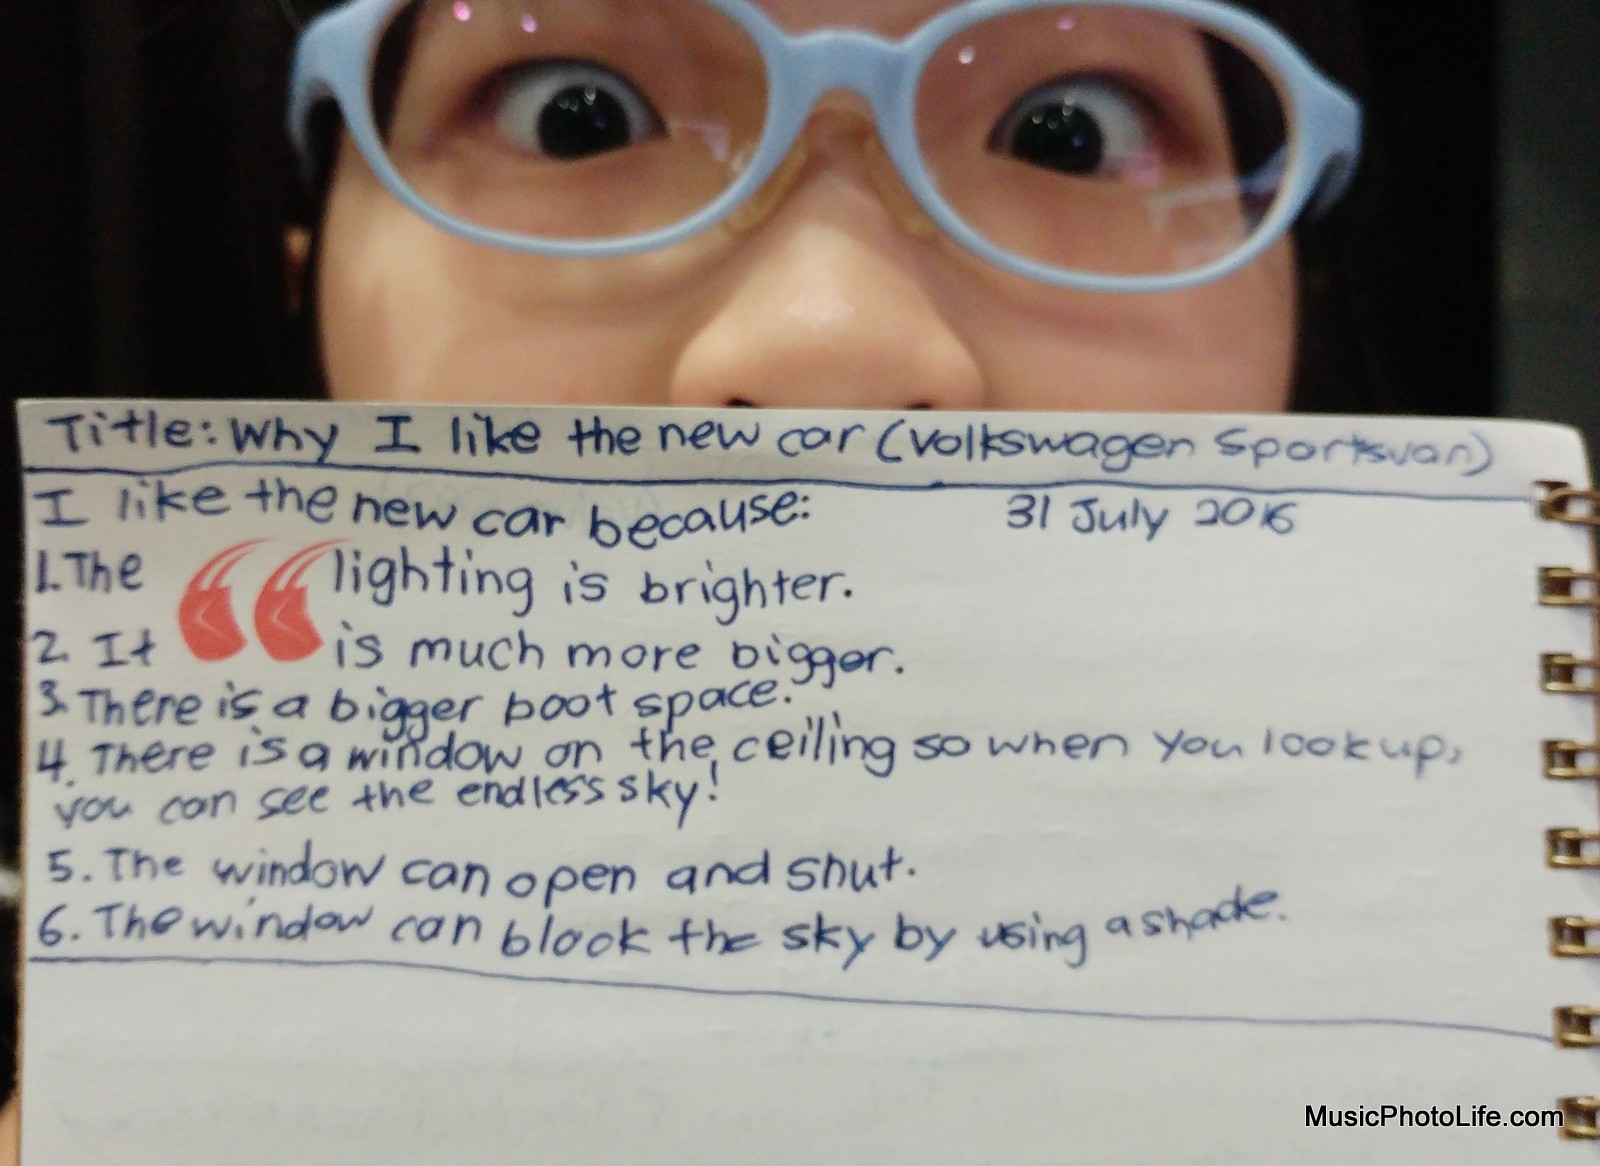 Title: Why I like the new car (Volkswagen Sportsvan)
I like the new car because: 31 July 2016
1. The lighting is brighter.
2. It is much more bigger.
3. There is a bigger boot space.
4. There is a window on the ceiling so when you look up,
you can see the endless sky!
5. The window can open and shut.
6. The window can block the sky by using a shade.
MusicPhotoLife.com